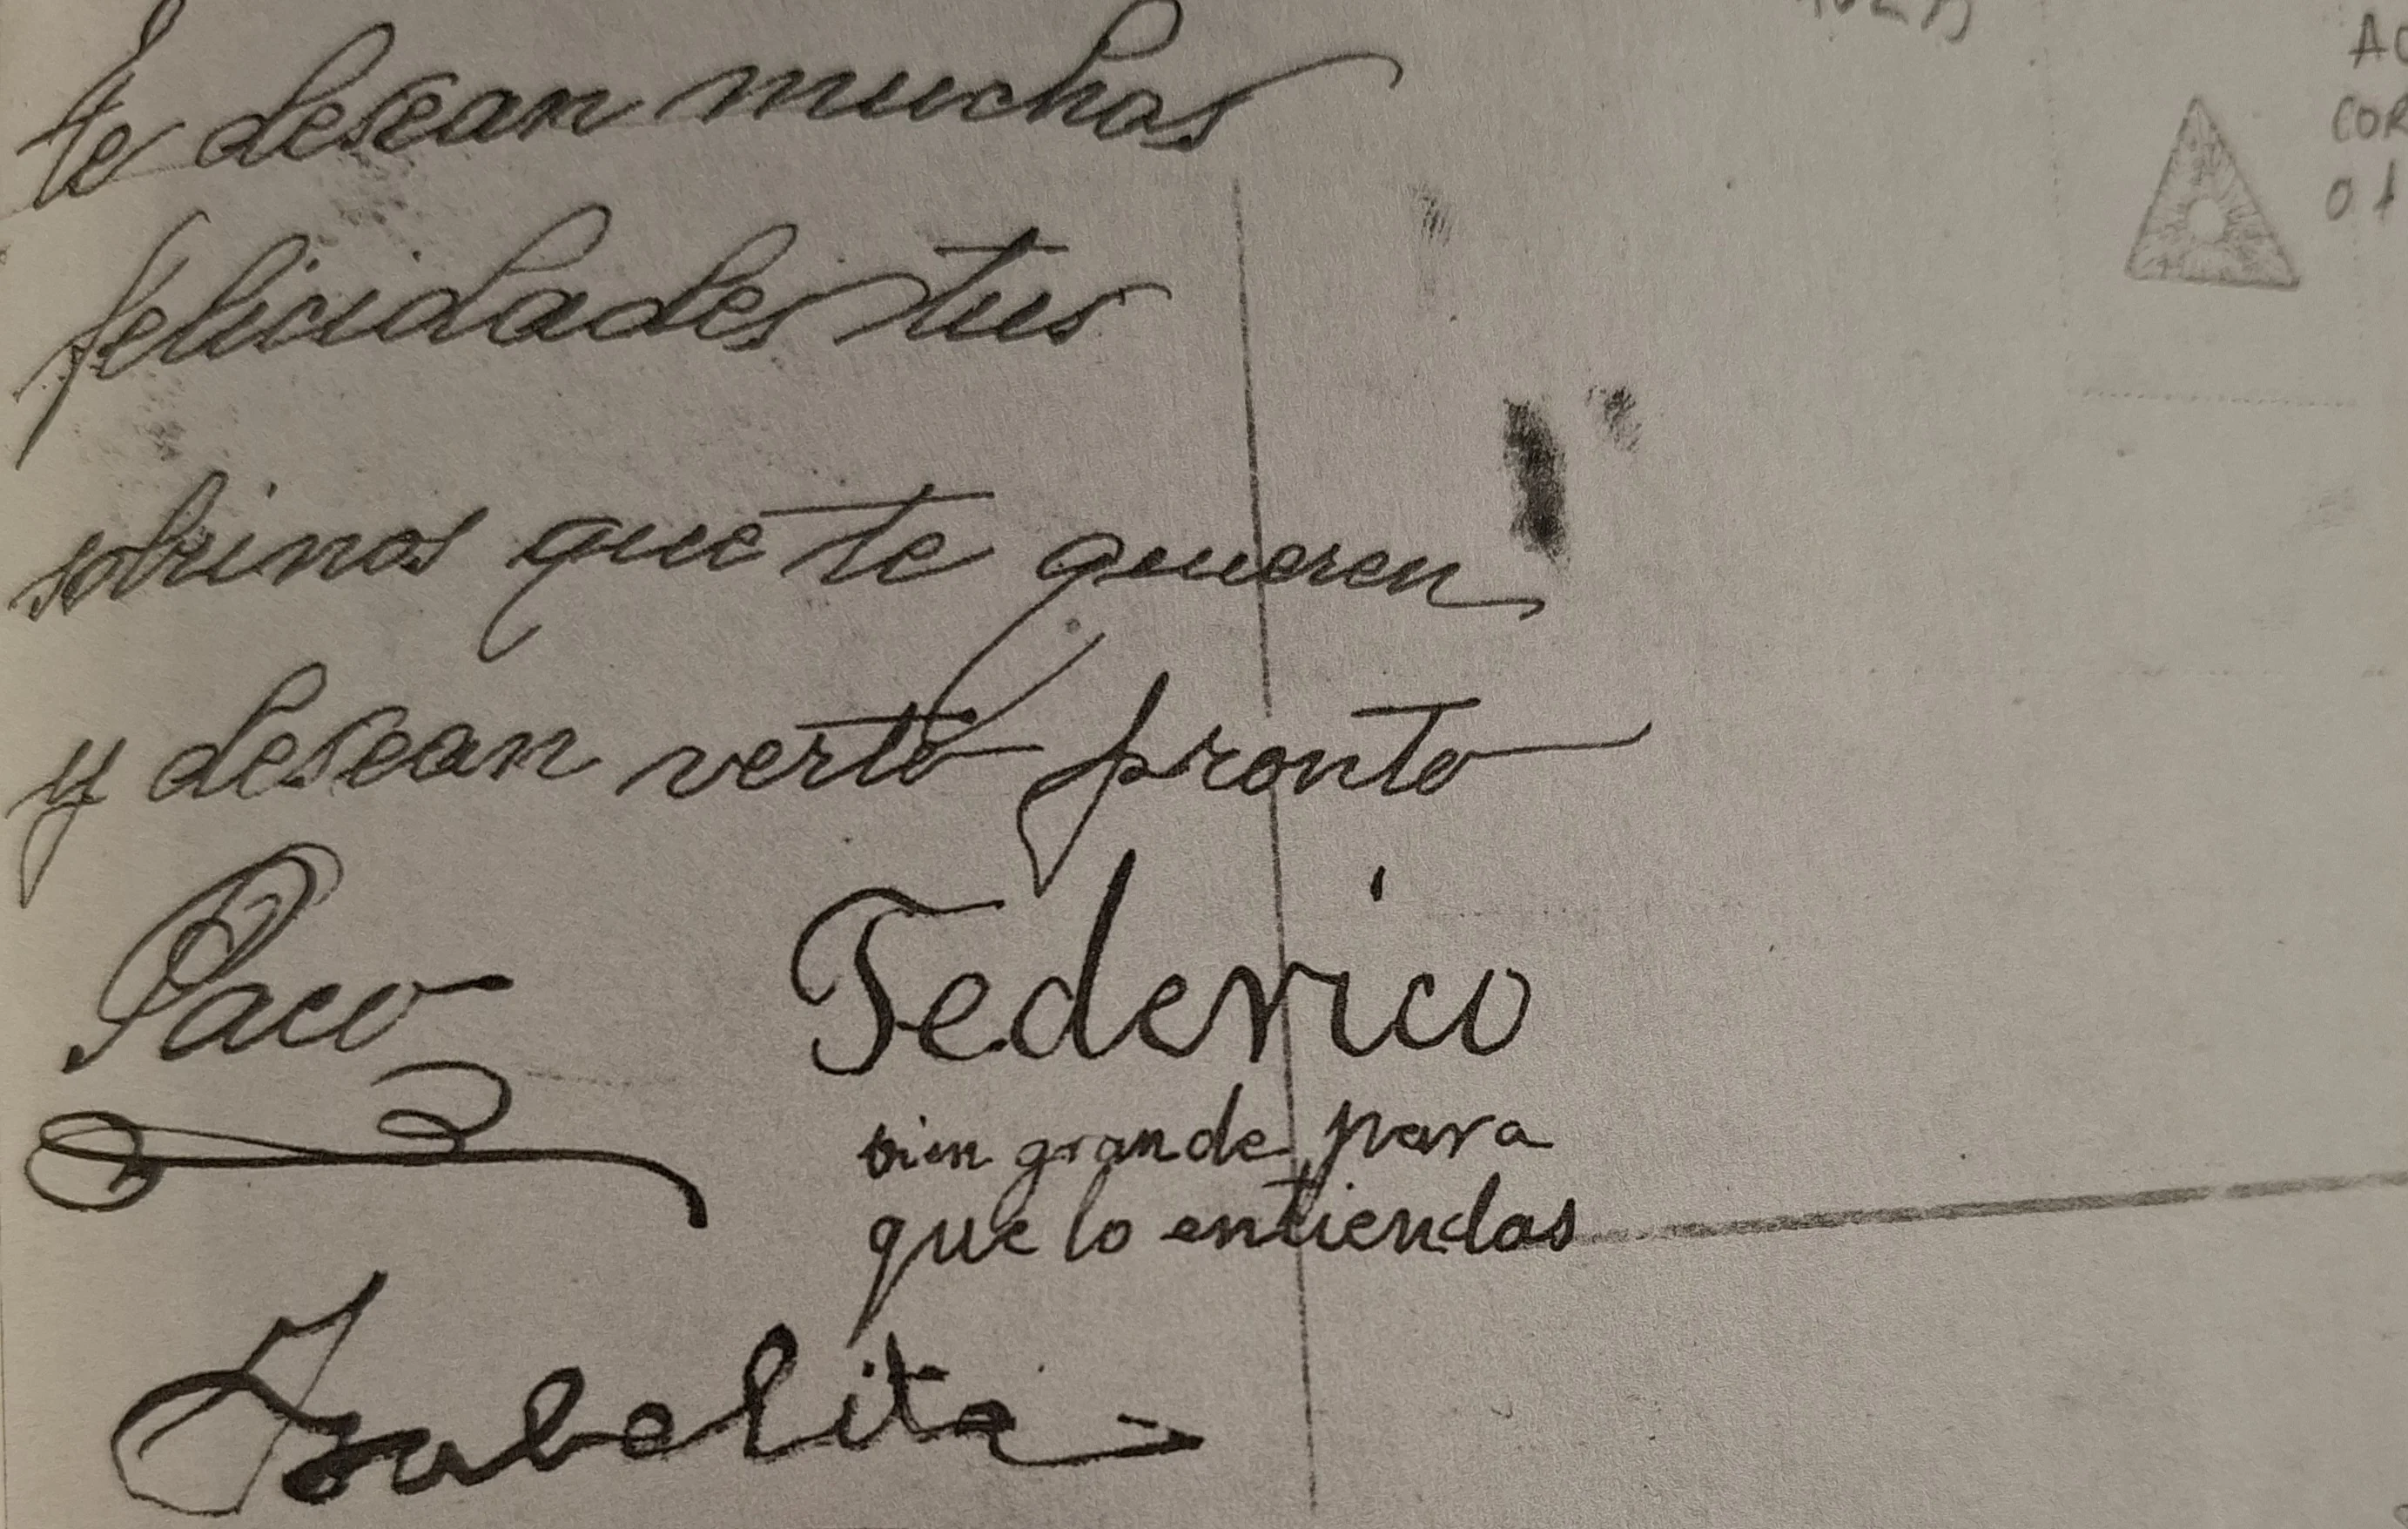 te desean muchas
felicidades tus
sobrinos que te quieren
y desean verte pronto
Paco
Federico
bien grande para
que lo entiendas
Isabelita